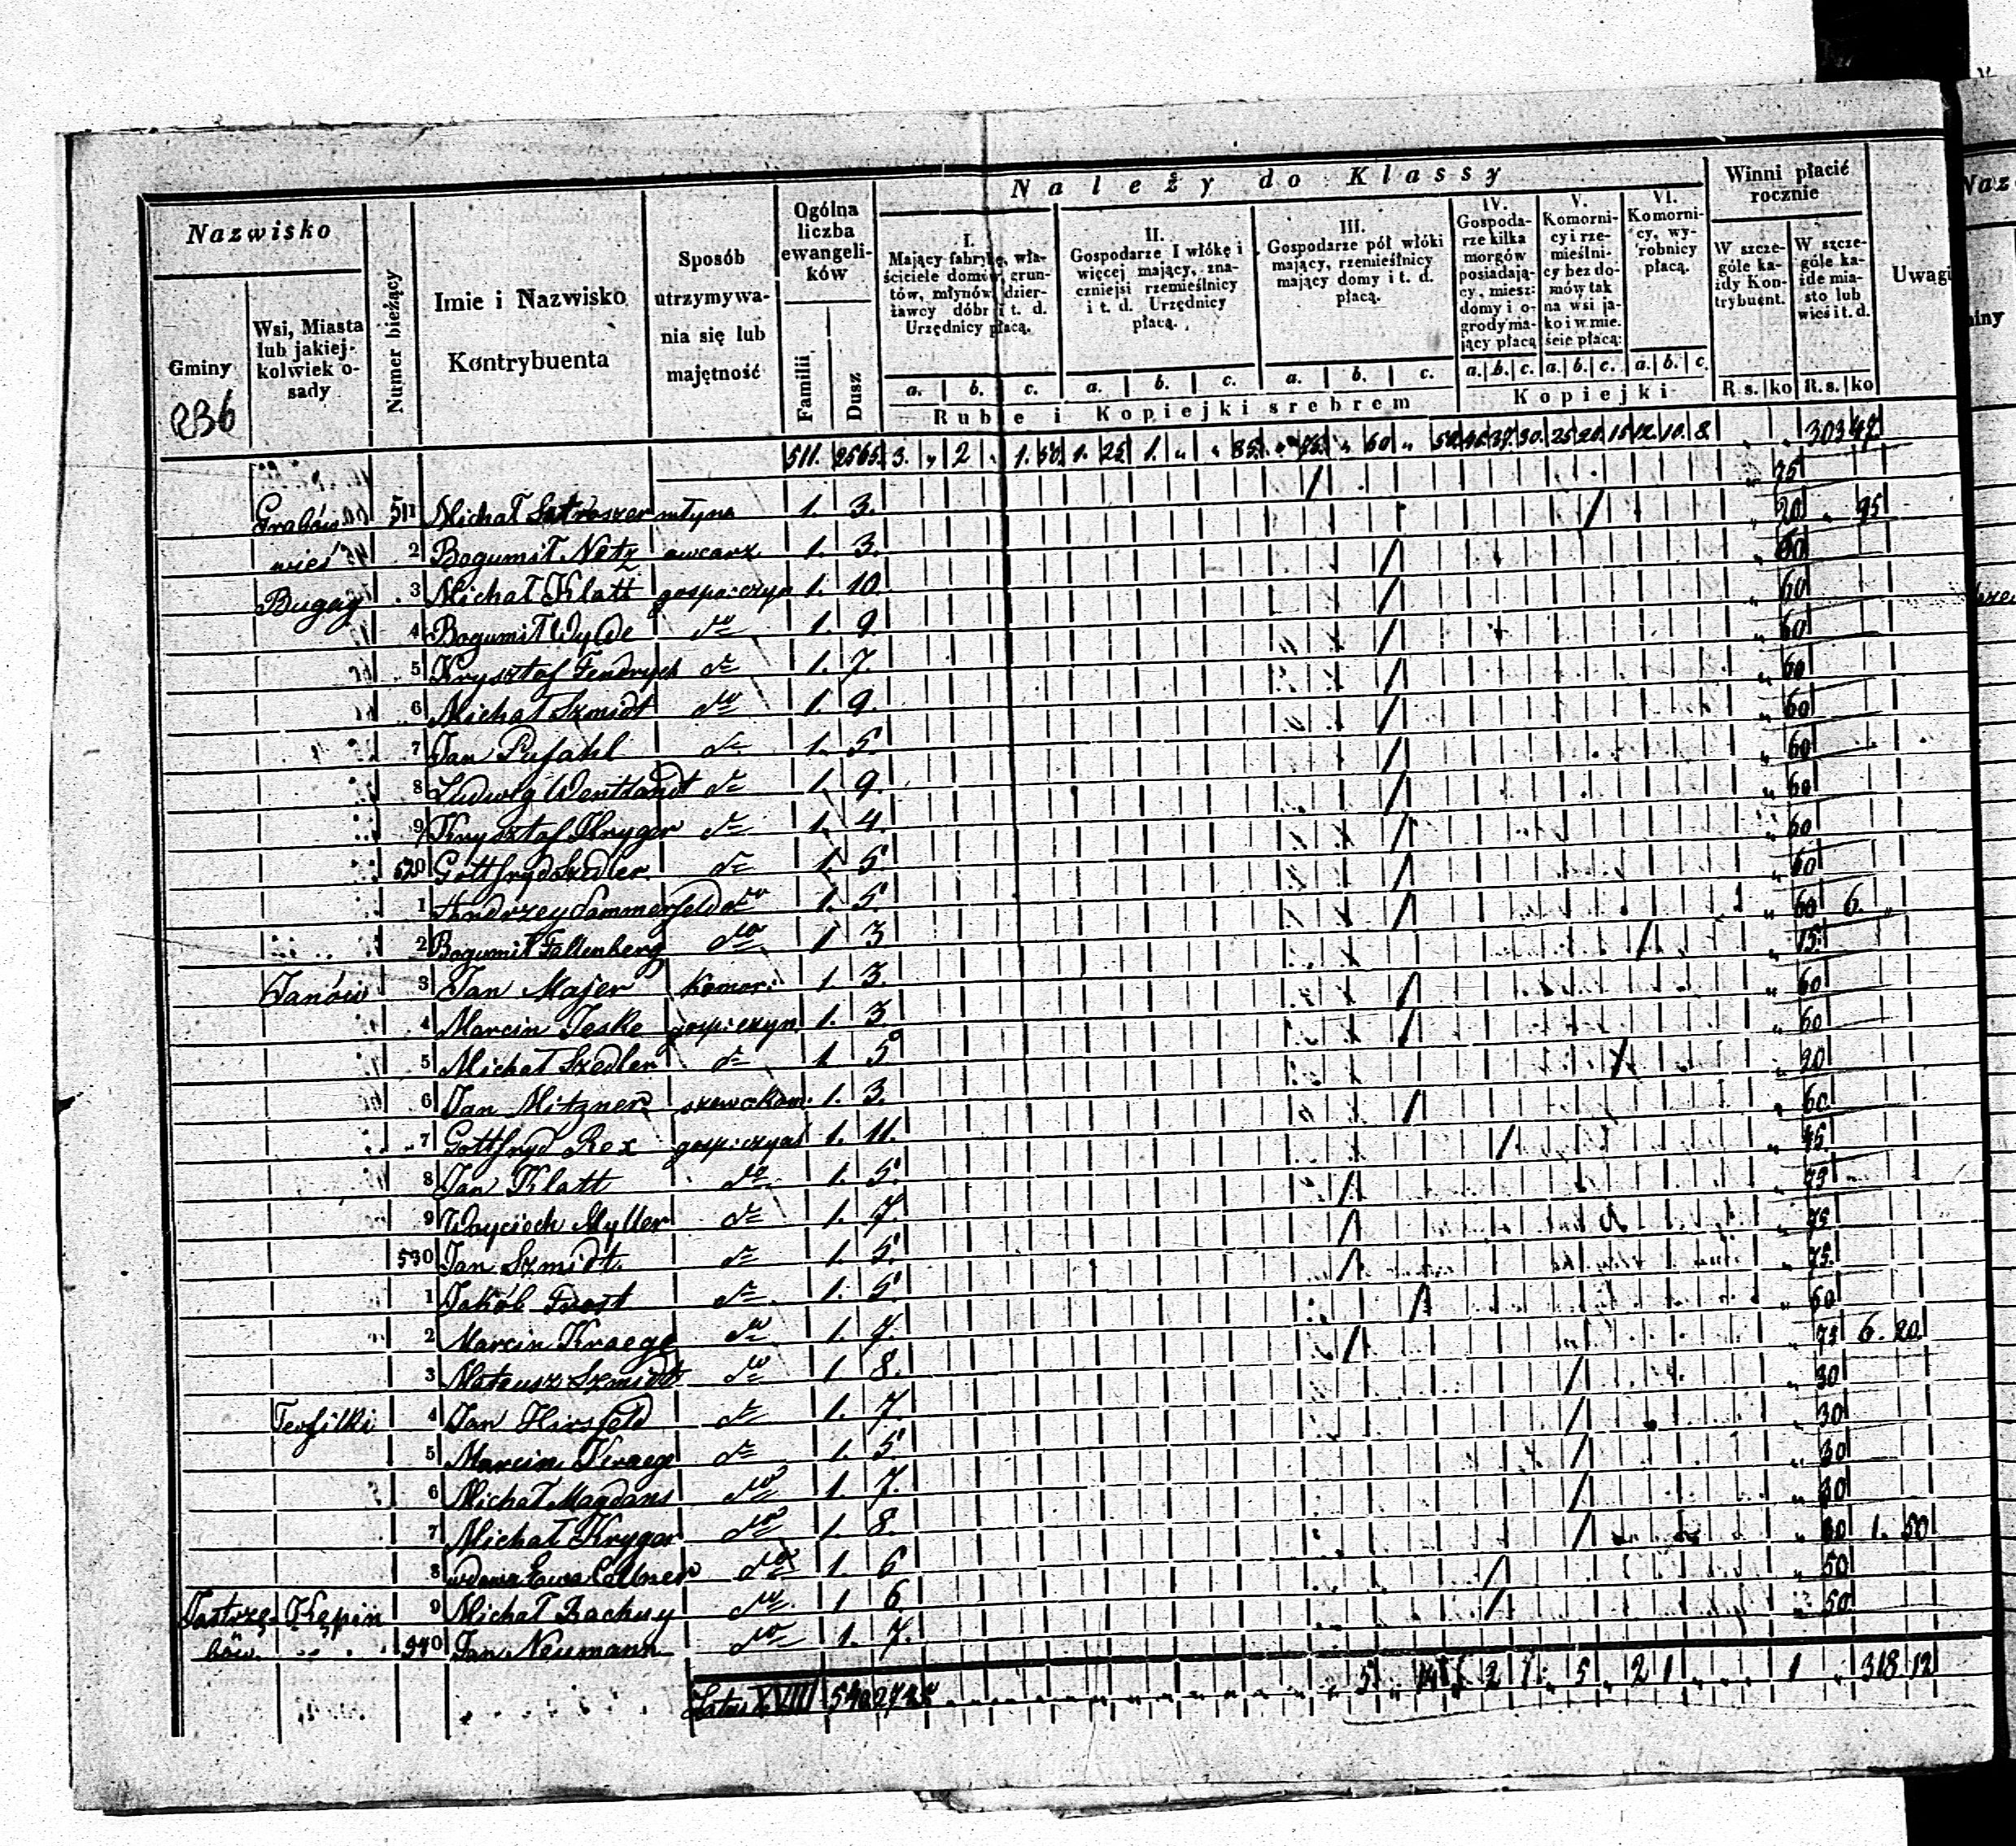 Należy do Klassy
Nazwisko
Gminy
236
Wsi, Miasta lub jakiej-kolwiek o-sady
Numer bieżący
Imie i Nazwisko Kontrybuenta
Sposób utrzymywa-nia się lub majętność
Ogólna liczba ewangeli-ków
Familii
Dusz
I. Mający fabrykę, wła-ściciele domów, grun-tów, młynów, dzier-żawcy dóbr i t. d. Urzędnicy płacą.
II. Gospodarze I włókę i więcej mający, zna-czniejsi rzemieślnicy i t. d. Urzędnicy płacą.
III. Gospodarze pół włóki mający, rzemieślnicy mający domy i t. d. płacą.
IV. Gospoda-rze kilka morgów posiadają-cy, miesz: domy i o-grody ma-jący płacą
V. Komorni-cy i rze-mieślni-cy bez do-mów tak na wsi ja-ko i w mie-ście płacą:
VI. Komorni-cy, wy-robnicy płacą.
Winni płacić rocznie
W szcze-góle ka-żdy Kon-trybuent.
W szcze-góle ka-żde mia-sto lub wieś i t. d.
Uwagi
a. b. c. a. b. c. a. b. c. a. b. c. a. b. c. a. b. c. R. s. ko R. s. ko
Ruble i Kopiejki srebrem Kopiejki
511. 2565. 3. „ 2 „ 1. 50. 1. 25 1. „ „ 85. „ 75. „ 60 „ 50. 45. 37. 30. 25 20. 15 12. 10. 8. „ „ 303 47.
Grabów 511 Michał Sztroszer młyna 1. 3. / „ 75
wieś 2 Bogumił Netz owcarz 1. 3. / „ 20 „ 95
Bugay 3 Michał Klatt gospo: czyn 1. 10. / „ 60
4 Bogumił Wyde dto 1. 9. / „ 60
5 Krysztof Fendrych dto 1. 7. / „ 60
6 Michał Szmidt dto 1. 9. / „ 60
7 Jan Pufahl dto 1. 5. / „ 60
8 Ludwig Wentlandt dto 1. 9. / „ 60
9 Krysztof Kryger dto 1. 4. / „ 60
520 Gottfryd Szedler dto 1. 5. / „ 60
1 Andrzey Sommerfeld dto 1. 5. / „ 60
2 Bogumił Faltenberg dto 1 3 / „ 60 6. „
Janów 3 Jan Majer komor: 1. 3. / „ 15.
4 Marcin Jeske gosp: czyn. 1. 3. / „ 60
5 Michał Szedler dto 1. 5 / „ 60
6 Jan Mitzner szewc kom. 1. 3. / „ 20
7 Gottfryd Rex gosp: czyn 1. 11. / „ 60
8 Jan Klatt dto 1. 5. / „ 45.
9 Woyciech Myller dto 1. 7. / „ 75
530 Jan Szmidt dto 1. 5. / „ 75
1 Jakób Frost dto 1. 5. / „ 75.
2 Marcin Kraege dto 1. 7. / „ 60
3 Mateusz Szmidt dto 1. 8. / „ 75 6. 20.
Teofilki 4 Jan Hirsfeld dto 1. 7. / „ 30
5 Marcin Kraege dto 1. 5. / „ 30
6 Michał Magdans dto 1. 7. / „ 30
7 Michał Kryger dto 1. 8. / „ 30
8 wdowa Ewa dto 1. 6 / „ 30 1. 50
Jastrzę- Kępin 9 Michał Rachuy dto 1 6 / „ 50
bów. 540 Jan Neumann dto 1. 7. / „ 50
Latus XVIII 540 2735 5 14 2 1 5 2 1 1 318 12